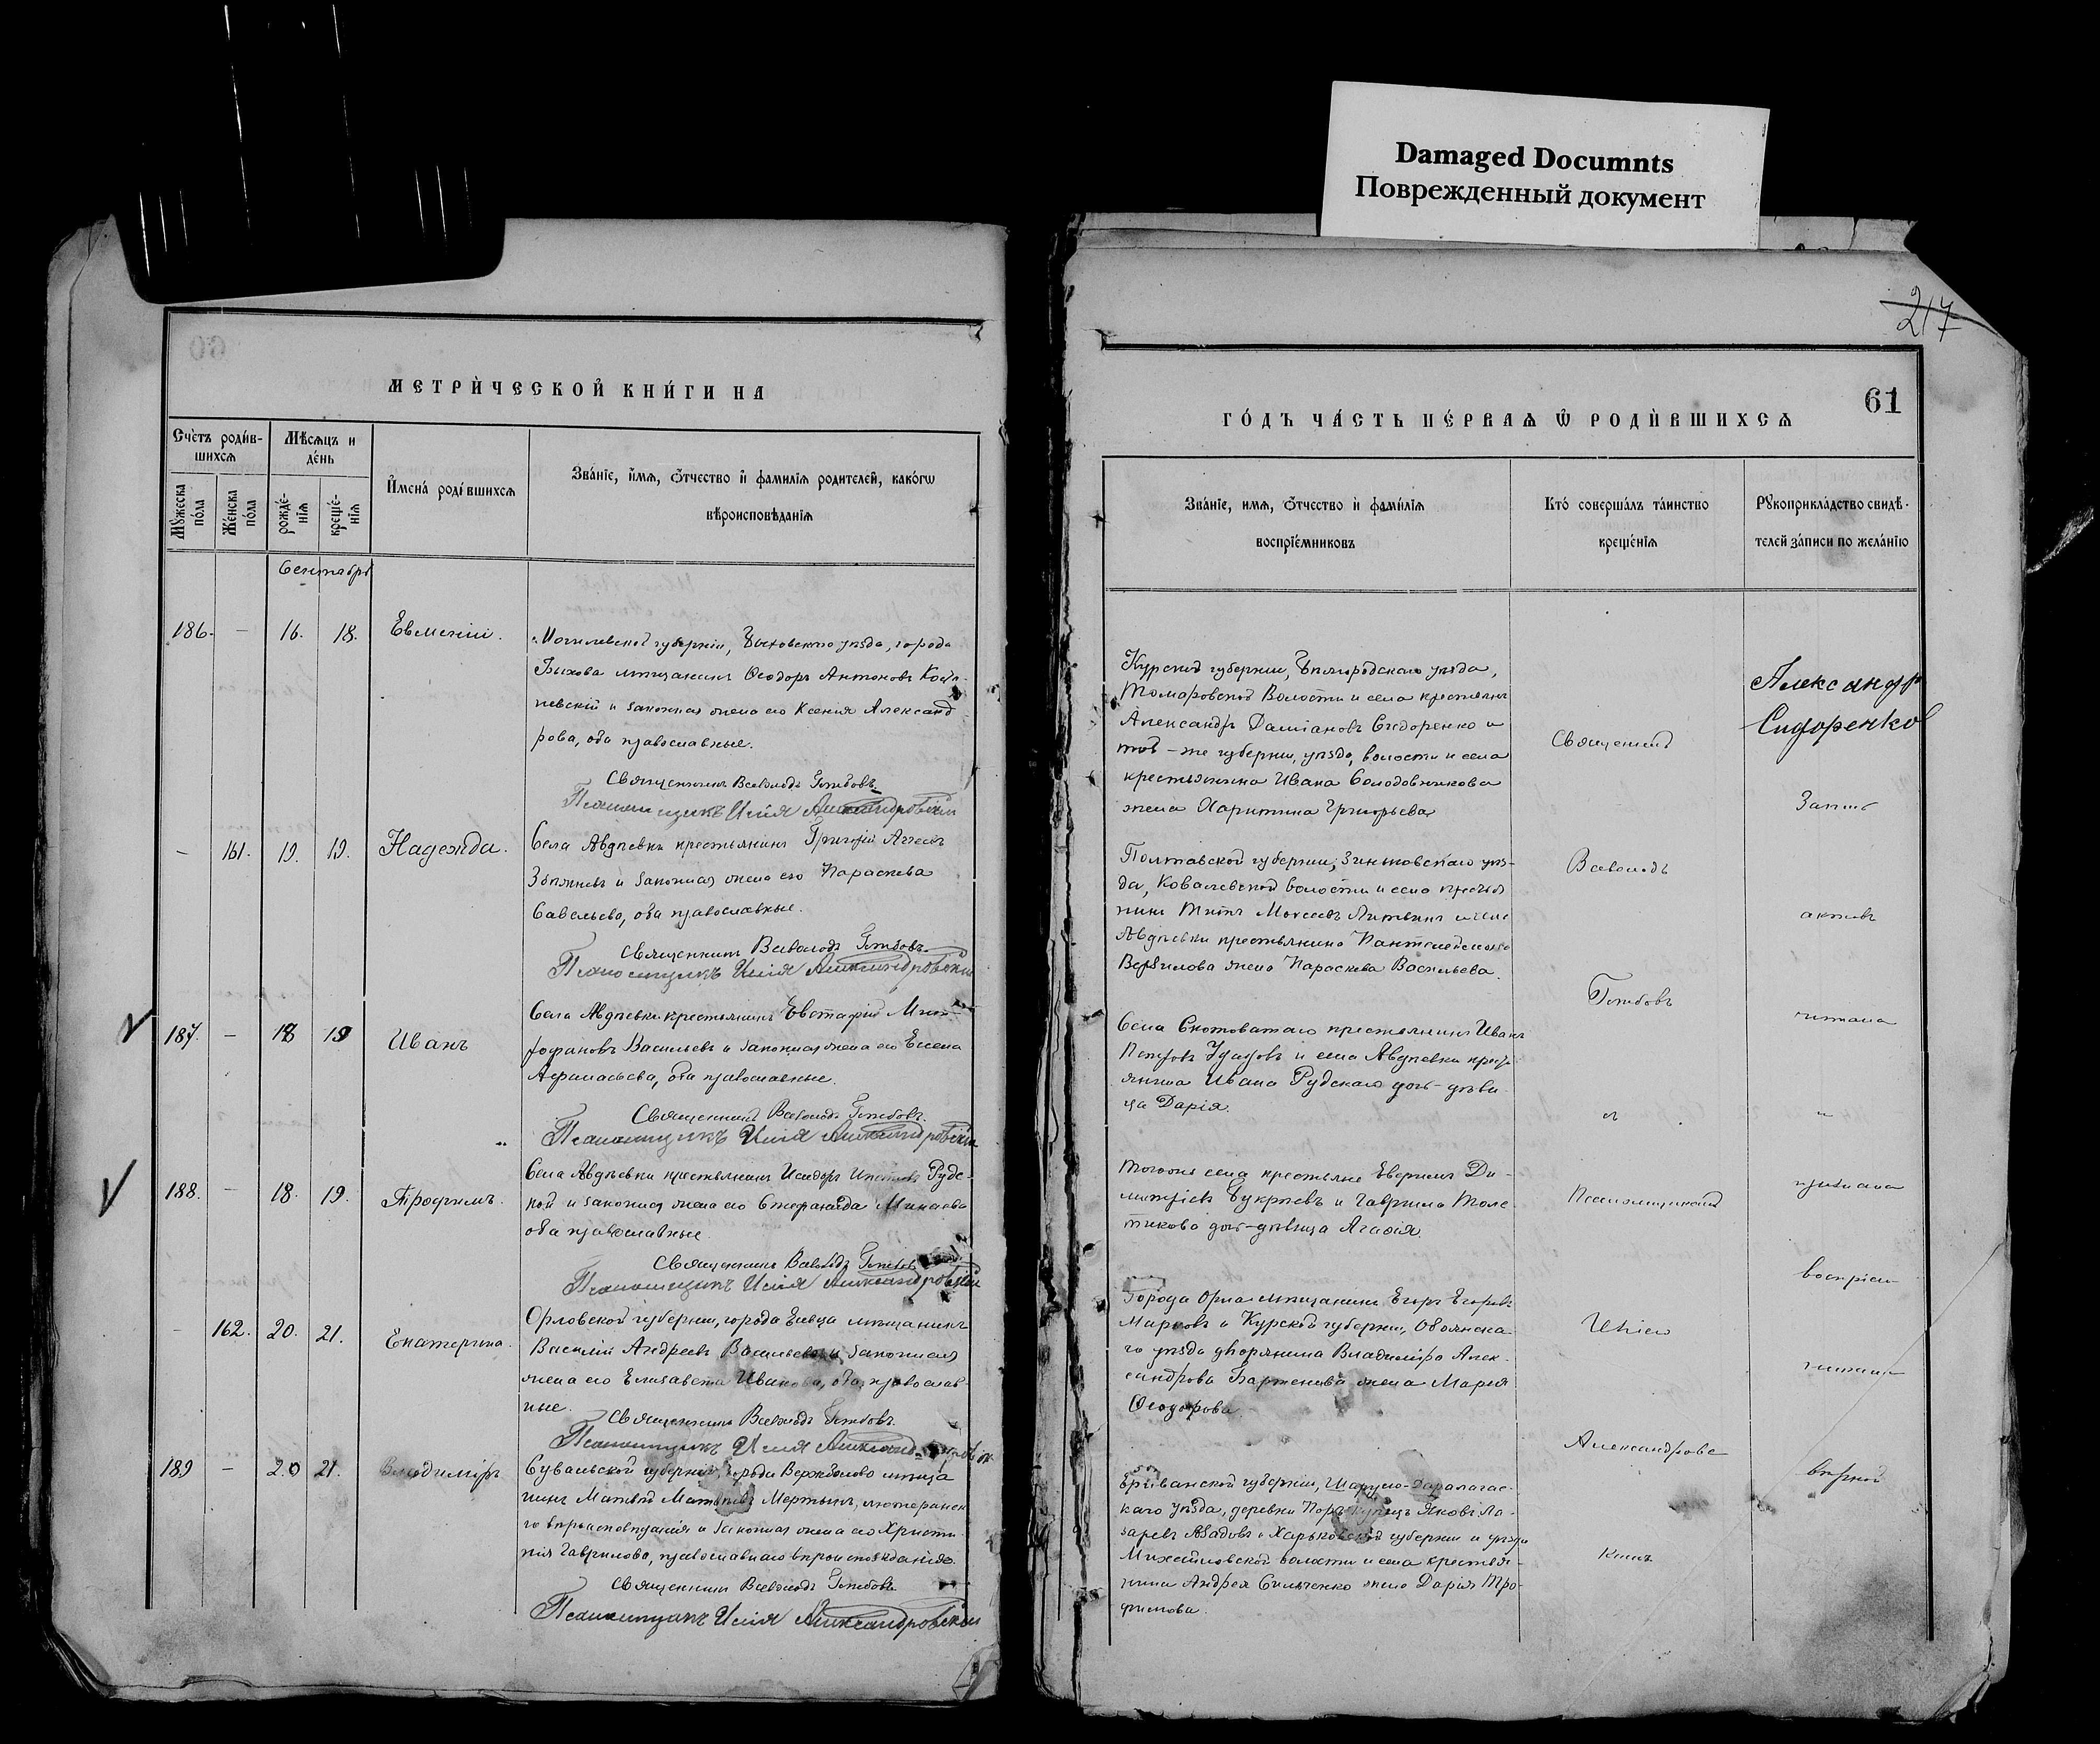 Damaged Documnts
Поврежденный документ
217
МЕТРИЧЕСКОЙ КНИГИ НА
Счетъ родив-
шихся
Мѣсяцъ и
день
Мужеска пола
Женска пола
рожде-
нія
креще-
нія
Имена родившихся
Званіе, имя, отчество и фамилія родителей, какогѡ
вѣроисповѣданія
Сентябрь
186. – 16. 18. Евменій.
Могилевской губерніи, Быховскаго уѣзда, города
Быхова мѣщанинъ Ѳеодоръ Антоновъ
и законная жена его Ксенія Александ
рова, оба православные.
Священникъ Всеволодъ
Псаломщикъ Илія Александровскій
– 161. 19. 19. Надежда.
Села Авдѣевки крестьянинъ Григорій
и законная жена его Параскева
Савельева, оба православные.
Священникъ Всеволодъ
Псаломщикъ Илія Александровскій
187. – 18 19 Иванъ
Села Авдѣевки крестьянинъ Евстафій Мит
рофановъ Васильевъ и законная жена его Елена
Афанасьева, оба православные.
Священникъ Всеволодъ
Псаломщикъ Илія Александровскій
188. – 18. 19. Трофимъ.
Села Авдѣевки крестьянинъ Исидоръ Рудс-
кой и законная жена его Минаева
оба православные.
Священникъ Всеволодъ
Псаломщикъ Илія Александровскій
– 162. 20. 21. Екатерина.
Орловской губерніи, города Ельца мѣщанинъ
Василій Андреевъ Васильевъ и законная
жена его Елисавета Иванова, оба православ-
ные.
Священникъ Всеволодъ
Псаломщикъ Илія Александровскій
189 – 20 21. Владиміръ
Сувалкской губерніи, города Вержболово мѣща
нинъ Матвѣй Матвѣевъ лютеранска
го вѣроисповѣданія и законная жена его Христи
нія Гаврилова, православнаго вѣроисповѣданія.
Священникъ Всеволодъ
Псаломщикъ Илія Александровскій
61
ГОДЪ ЧАСТЬ ПЕРВАЯ Ѿ РОДИВШИХСЯ
Званіе, имя, отчество и фамилія
воспріемниковъ
Кто совершалъ таинство
крещенія
Рукоприкладство свидѣ-
телей записи по желанію
Курской губерніи, Бѣлгородскаго уѣзда,
Томаровской Волости и села крестьянинъ
Александръ Даміановъ Сидоренко и
той-же губерніи, уѣзда, волости и села
крестьянина Ивана Солодовникова
жена Харитина Григорьева
Полтавской губерніи, Зиньковскаго уѣз-
да, Ковалевской волости и села крестья
нинъ Титъ Моисеевъ Литвинъ и села
Авдѣевки крестьянина
жена Параскева Васильева.
Села Скотоватаго крестьянинъ Иванъ
Петровъ и села Авдѣевки крест
янина Ивана Рудскаго дочь-дѣви
ца Дарія.
Тогоже села крестьяне Ди-
митріевъ Букрѣевъ и Гавриила Толс
тикова дочь-дѣвица Агафія.
Города Орла мѣщанинъ Егоръ Егоровъ
Марковъ и Курской губерніи, Обоянска
го уѣзда дворянина Владиміра Алек-
сандрова жена Марія
Ѳеодорова.
Эриванской губерніи, Шаруло-Даралагас-
каго уѣзда, деревни купецъ Яковъ Ла-
заревъ Асадовъ и Харьковской губерніи и уѣзда
Михайловской волости и села крестья-
нина Андрея жена Дарія Тро-
фимова.
Священникъ
Всеволодъ
Псаломщикомъ
Иліею
Александровс
кимъ
Александръ
Сидоренковъ
Запись
актовъ
читана
воспріем
вѣрной